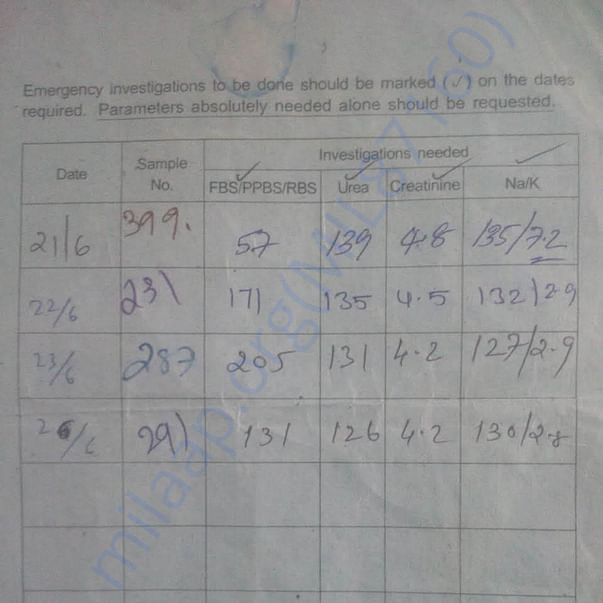 Emergency investigations to be done should be marked (✓) on the dates
required. Parameters absolutely needed alone should be requested.
Date Sample No. Investigations needed
FBS/PPBS/RBS Urea Creatinine Na/K
21/6 399. 57 139 4.8 135/7.2
22/6 231 171 135 4.5 132/2.9
23/6 287 205 131 4.2 127/2.9
291 131 126 4.2 130/2.8
milaap.org(MIL87160)